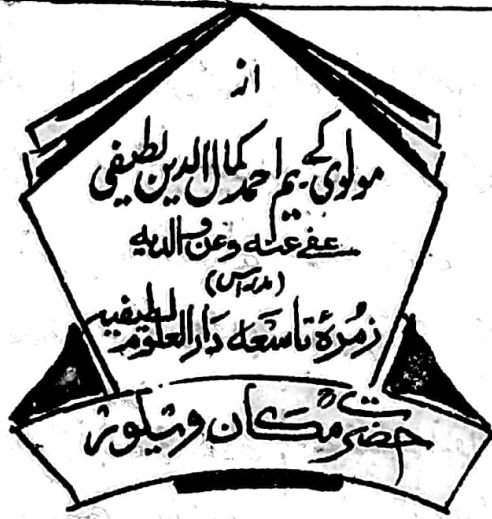 از
مولوی کے یم احمد کمال الدین لطیفی
عفے عنہ وعن والدیہ
(مدراس)
زمرۂ تاسعہ دارالعلوم لطیفیہ
حضرت مکان ویلور